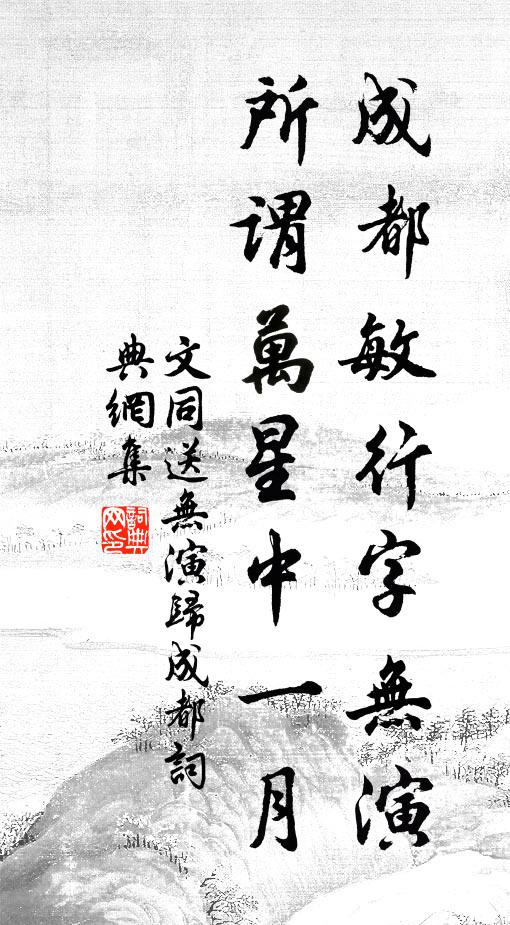 成都敏行字無演
所謂萬星中一月
文同送無演歸成都詞
典網集
詞典網印